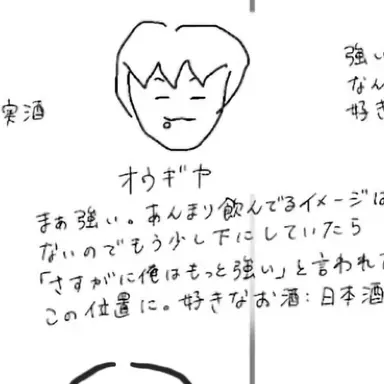 実酒
強い
なん
好き
オウギヤ
まぁ強い。あんまり飲んでるイメージは
ないのでもう少し下にしていたら
「さすがに俺はもっと強い」と言われて
この位置に。好きなお酒:日本酒